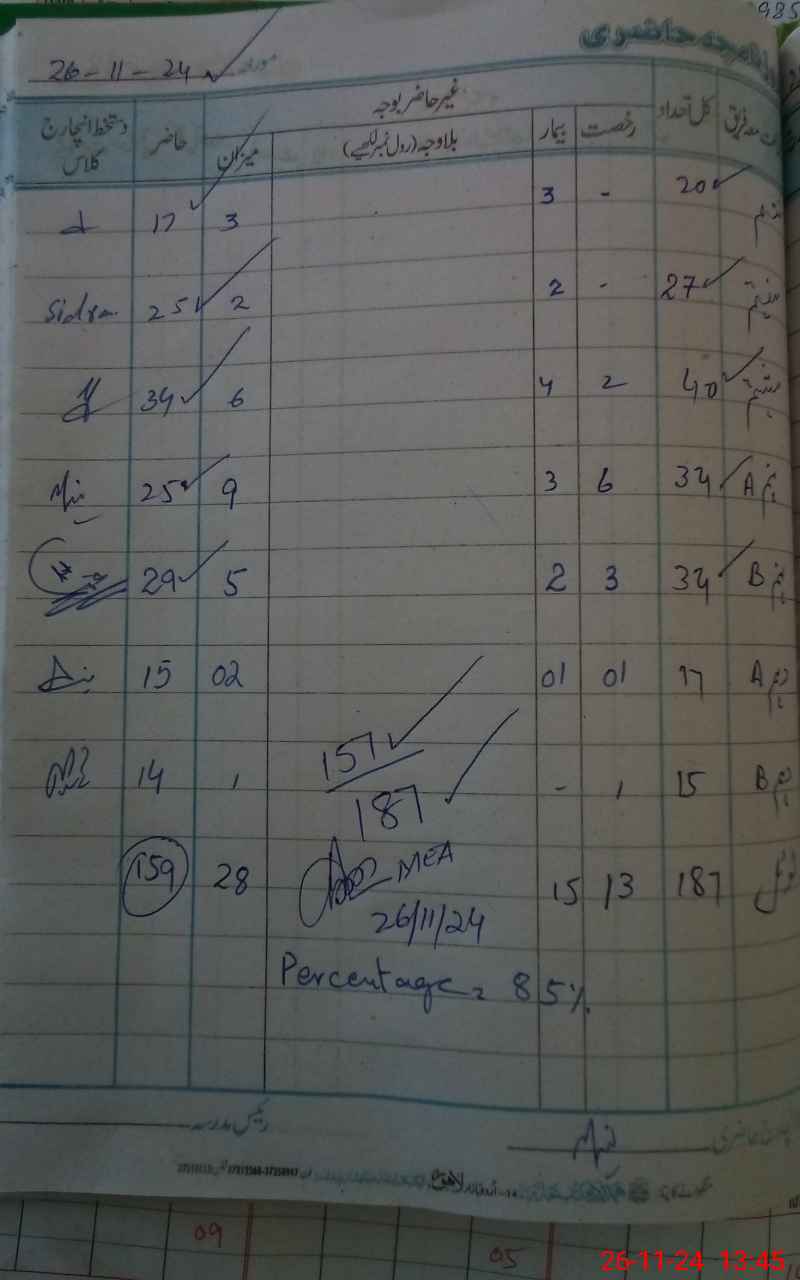 985
حاضری
26-11-24
مورخہ
کل تعداد
غیر حاضر بوجہ
حاضر
دستخط انچارج کلاس
رخصت
بیمار
بلاوجہ (رول نمبر لکھیے)
میزان
20 - 3 3 17
ہفتم 27 - 2 2 25 Sidra
ہشتم 40 2 4 6 34
نہم A 34 6 3 9 25
نہم B 34 3 2 5 29
دہم A 17 01 01 02 15
دہم B 15 1 - 1 14
157
187
ٹوٹل 187 13 15 28 159
MEA
26/11/24
Percentage = 85%
رئیس مدرسہ
لاہور
09
05
26-11-24 13:45